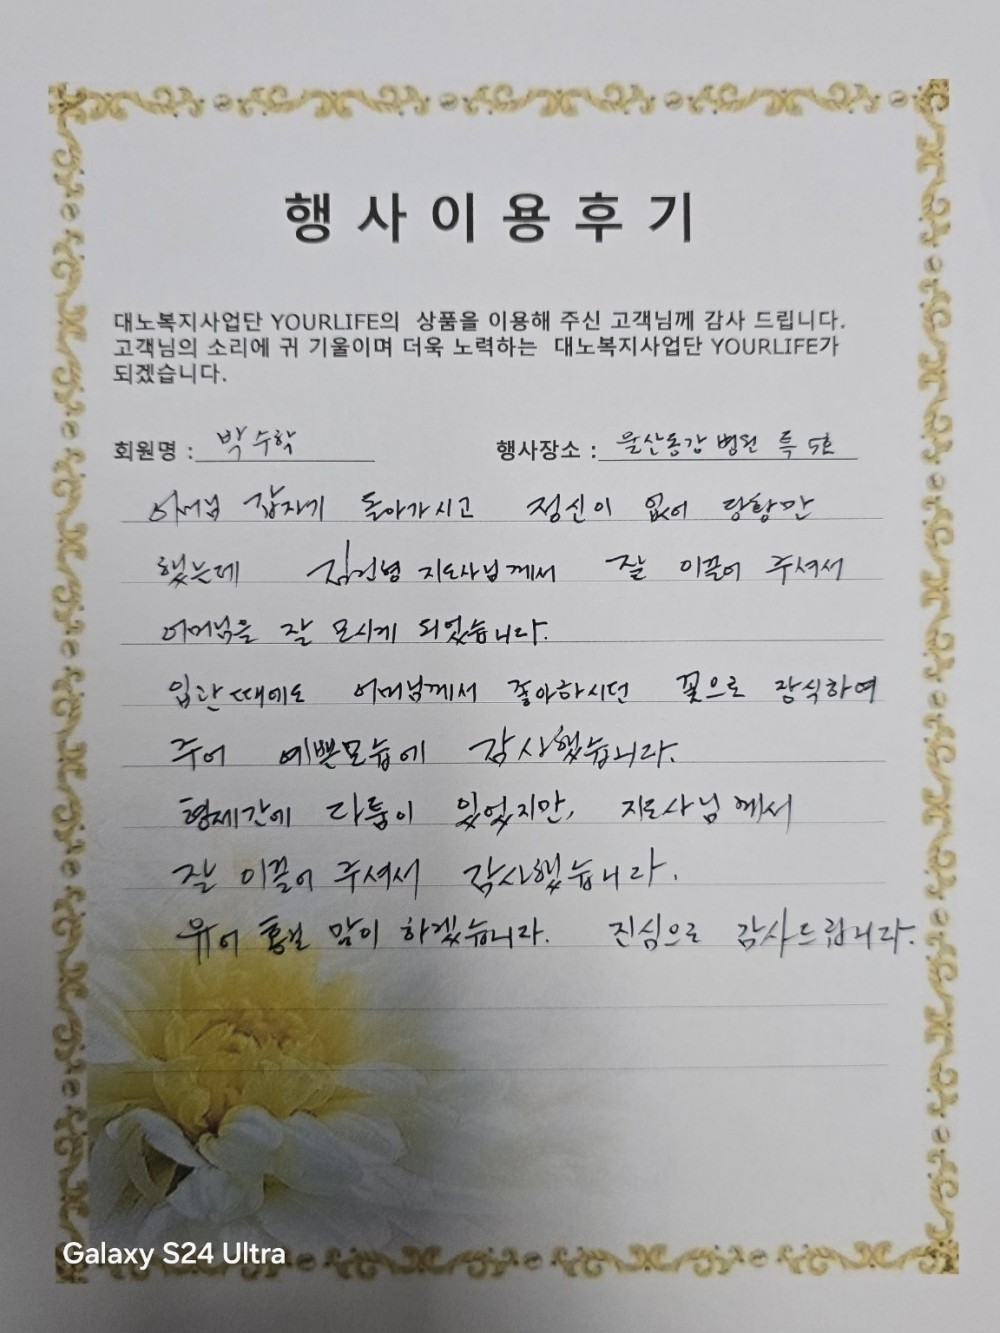 행사이용후기
대노복지사업단 YOURLIFE의 상품을 이용해 주신 고객님께 감사 드립니다.
고객님의 소리에 귀 기울이며 더욱 노력하는 대노복지사업단 YOURLIFE가
되겠습니다.
회원명 : 박수학 행사장소 : 울산동강병원 특 5호
어머님 갑자기 돌아가시고 정신이 없어 당황만
했는데 지도사님께서 잘 이끌어 주셔서
어머님을 잘 모시게 되었습니다.
입관때에도 어머님께서 좋아하시던 꽃으로 장식하여
주어 예쁜모습에 감사했습니다.
형제간에 다툼이 있었지만, 지도사님께서
잘 이끌어 주셔서 감사했습니다.
홍보 많이 하겠습니다. 진심으로 감사드립니다.
Galaxy S24 Ultra